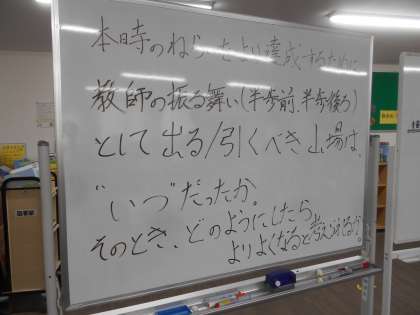 本時のねらいをより達成するために
教師の振る舞い(半歩前、半歩後ろ)
として出る/引くべき山場は、
"いつ"だったか。
そのとき、どのようにしたら
よりよくなると考えられるか。